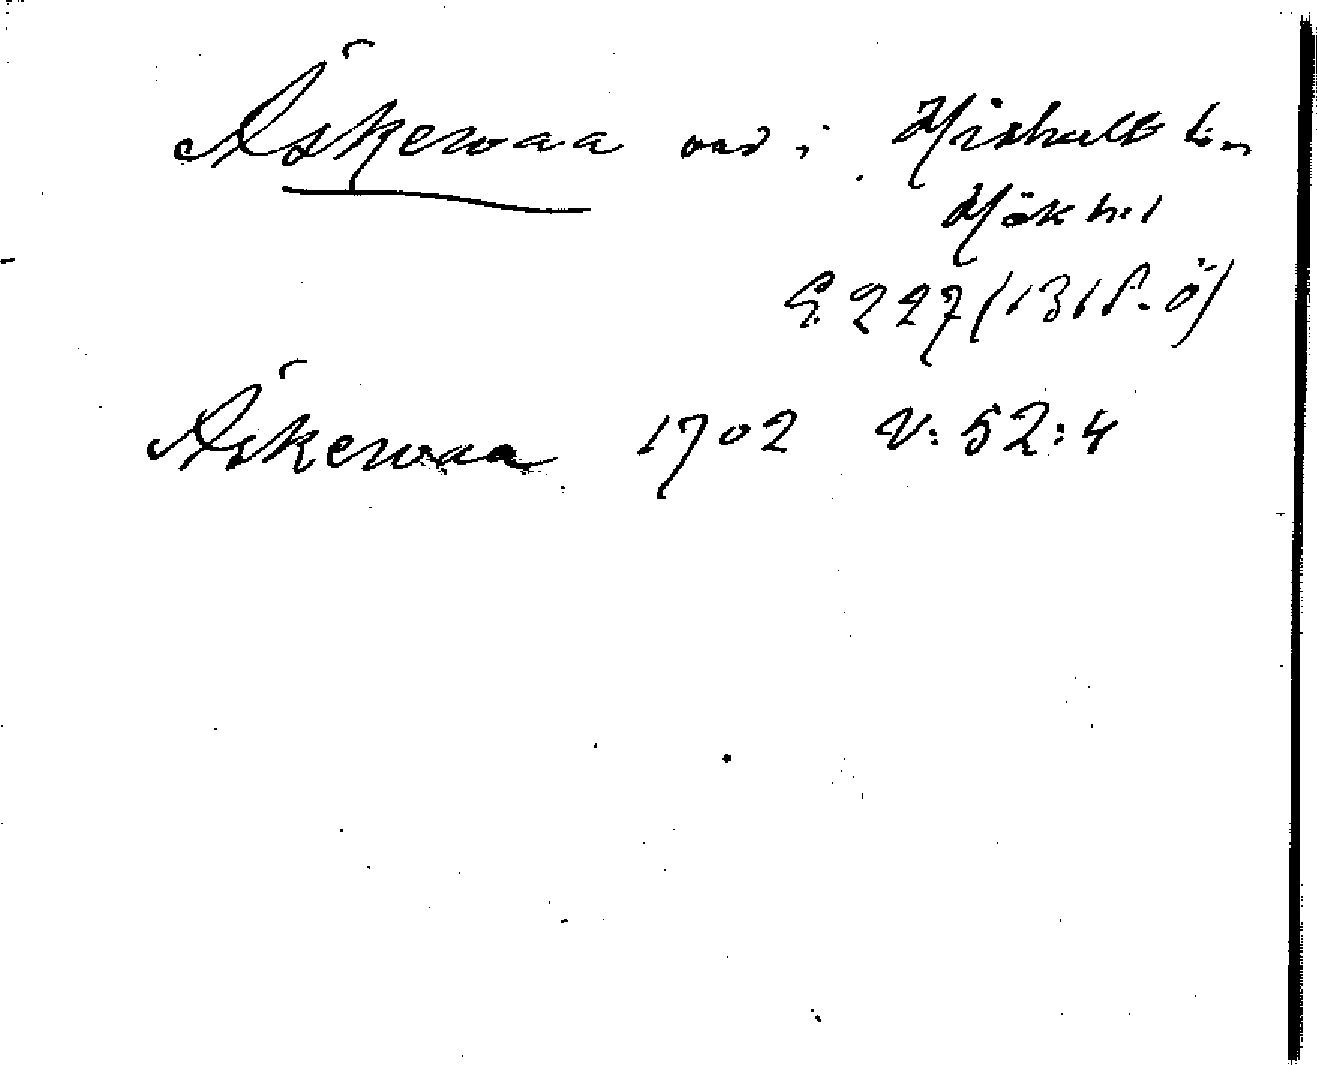 Äskewaa vad i Hishult sn
Hök hd
G 227 (1318. ö)
Äskewaa 1702 V: 52:4